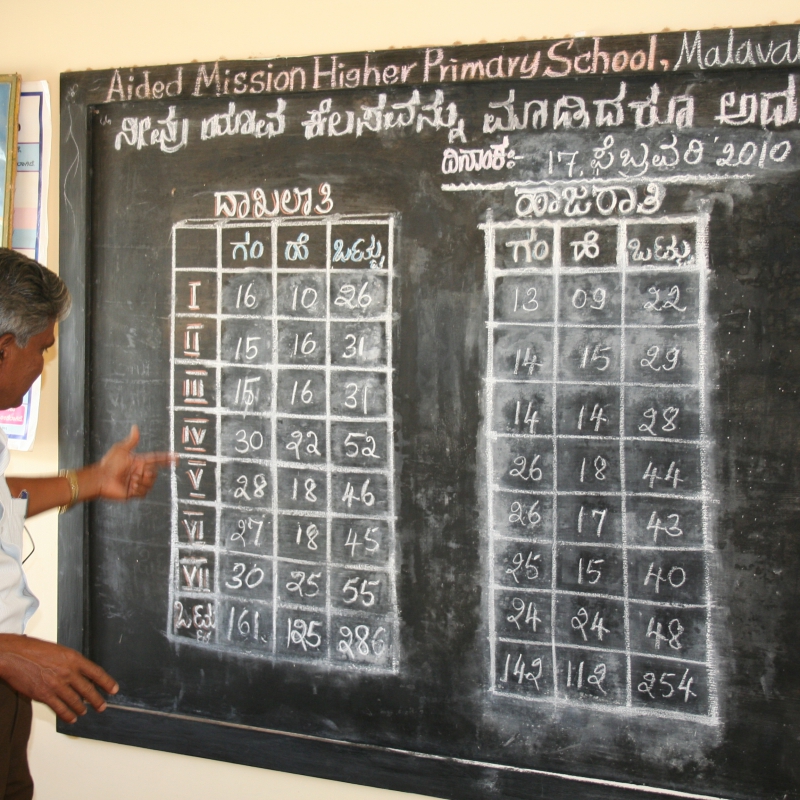 Aided Mission Higher Primary School, Malaval
ನೀವು ಯಾವ ಕೆಲಸವನ್ನು ಮಾಡಿದರೂ ಅದ
ದಿನಾಂಕ:- 17, ಫೆಬ್ರವರಿ 2010
ದಾಖಲಾತಿ
ಗಂ ಹೆ ಒಟ್ಟು
I 16 10 26
II 15 16 31
III 15 16 31
IV 30 22 52
V 28 18 46
VI 27 18 45
VII 30 25 55
ಒಟ್ಟು 161 125 286
ಹಾಜರಾತಿ
ಗಂ ಹೆ ಒಟ್ಟು
13 09 22
14 15 29
14 14 28
26 18 44
26 17 43
25 15 40
24 24 48
142 112 254